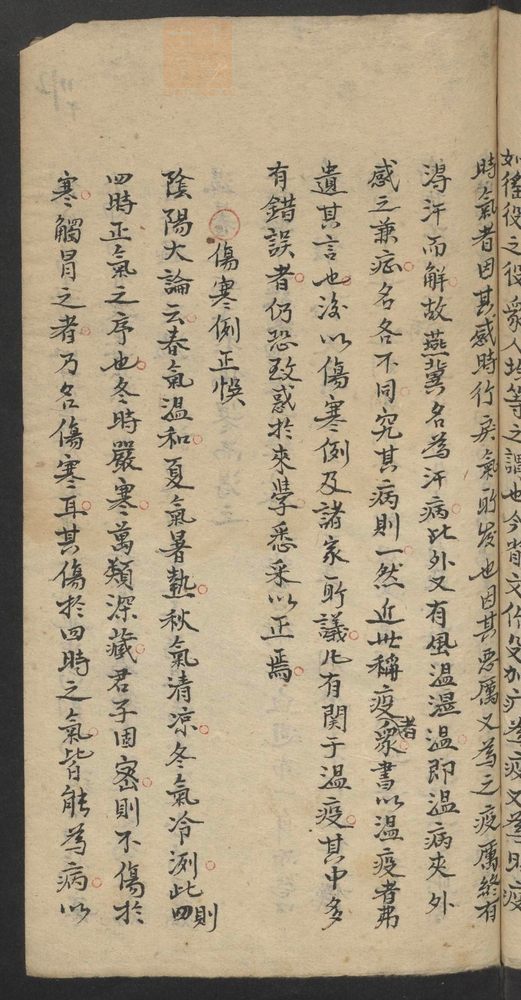 如徭役之役眾人均等之謂也今省文作殳加疒為疫又為時疫
時氣者因其感時行戾氣所發也因其惡厲又為之疫厲終有
淂汗而解故燕冀名為汗病此外又有風温濕温即温病夾外
感之兼症名各不同究其病則一然近世稱疫者眾書以温疫者弗
遺其言也後以傷寒例及諸家所議凡有関于温疫其中多
有錯誤者仍恐致惑於來學悉采以正焉
傷寒例正悞
陰陽大論云春氣温和夏氣暑熱秋氣清凉冬氣冷冽此則
四時正氣之序也冬時嚴寒萬類深藏君子固密則不傷於
寒觸冒之者乃名傷寒耳其傷於四時之氣皆能為病以